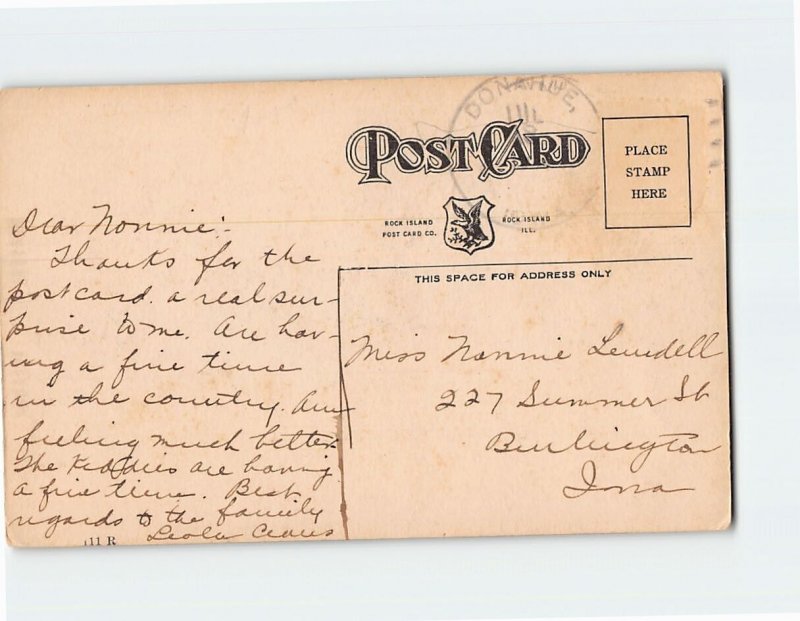 DONAHUE,
POST CARD
PLACE
STAMP
HERE
ROCK ISLAND
POST CARD CO.
ROCK ISLAND
ILL.
THIS SPACE FOR ADDRESS ONLY
Dear Nonnie:-
Thanks for the
post card. a real sur-
prise to me. Are hav-
ing a fine time
in the country. Am
feeling much better.
The Kiddies are having
a fine time. Best
regards to the family
Leola
11 R
Miss Nonnie Lendell
227 Summer St
Burlington
Iowa